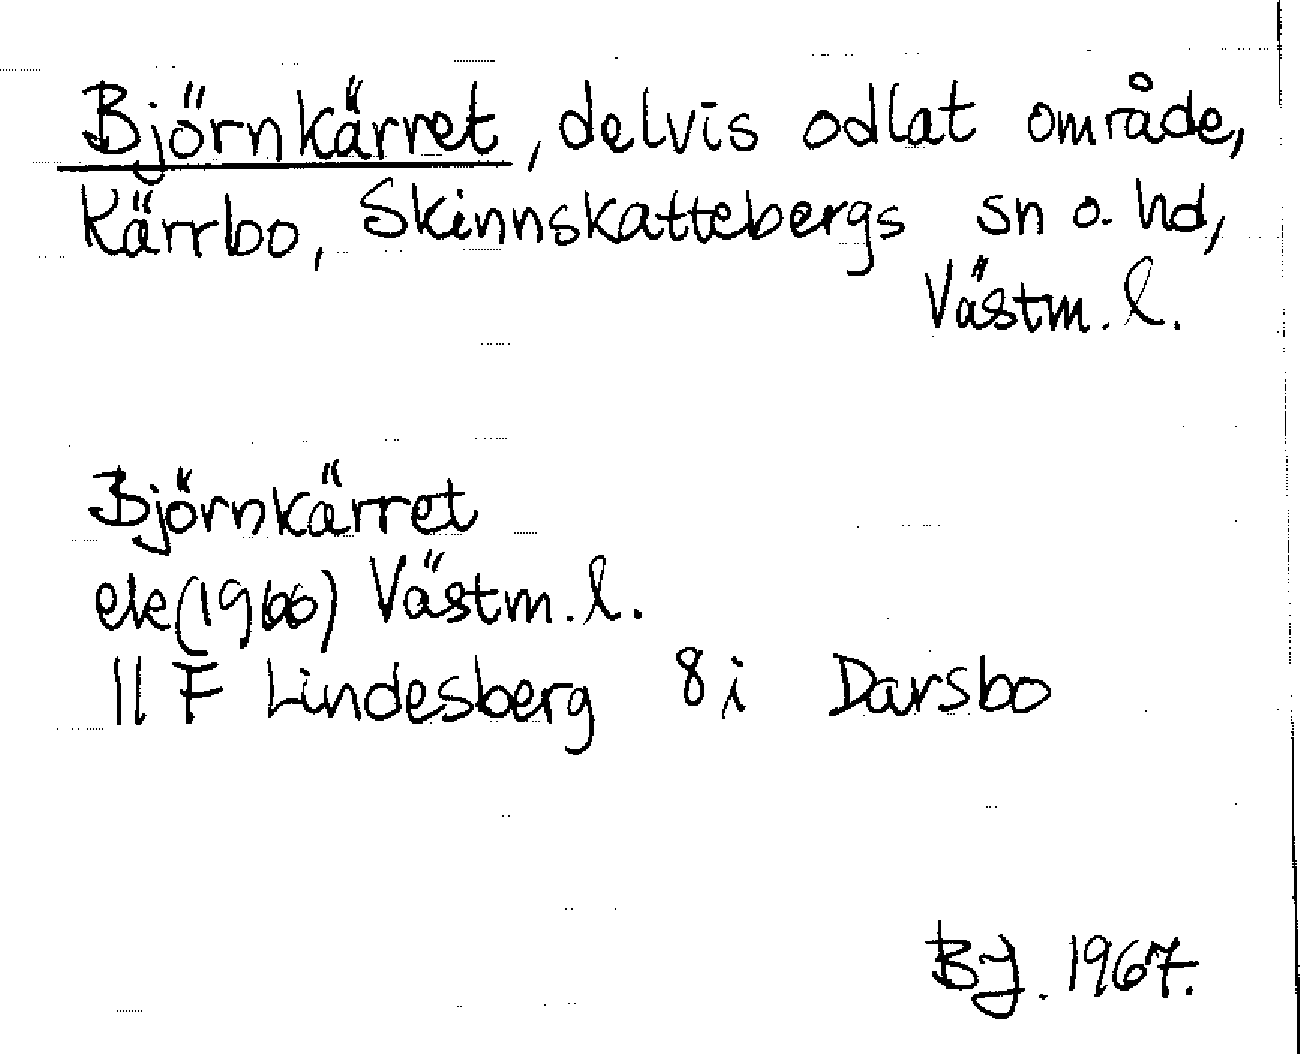 Björnkärret, delvis odlat område,
Kärrbo, Skinnskattebergs sn o. hd,
Västm. l.
Björnkärret
ek (1960) Västm. l.
11 F Lindesberg 8i Darsbo
BJ. 1967.